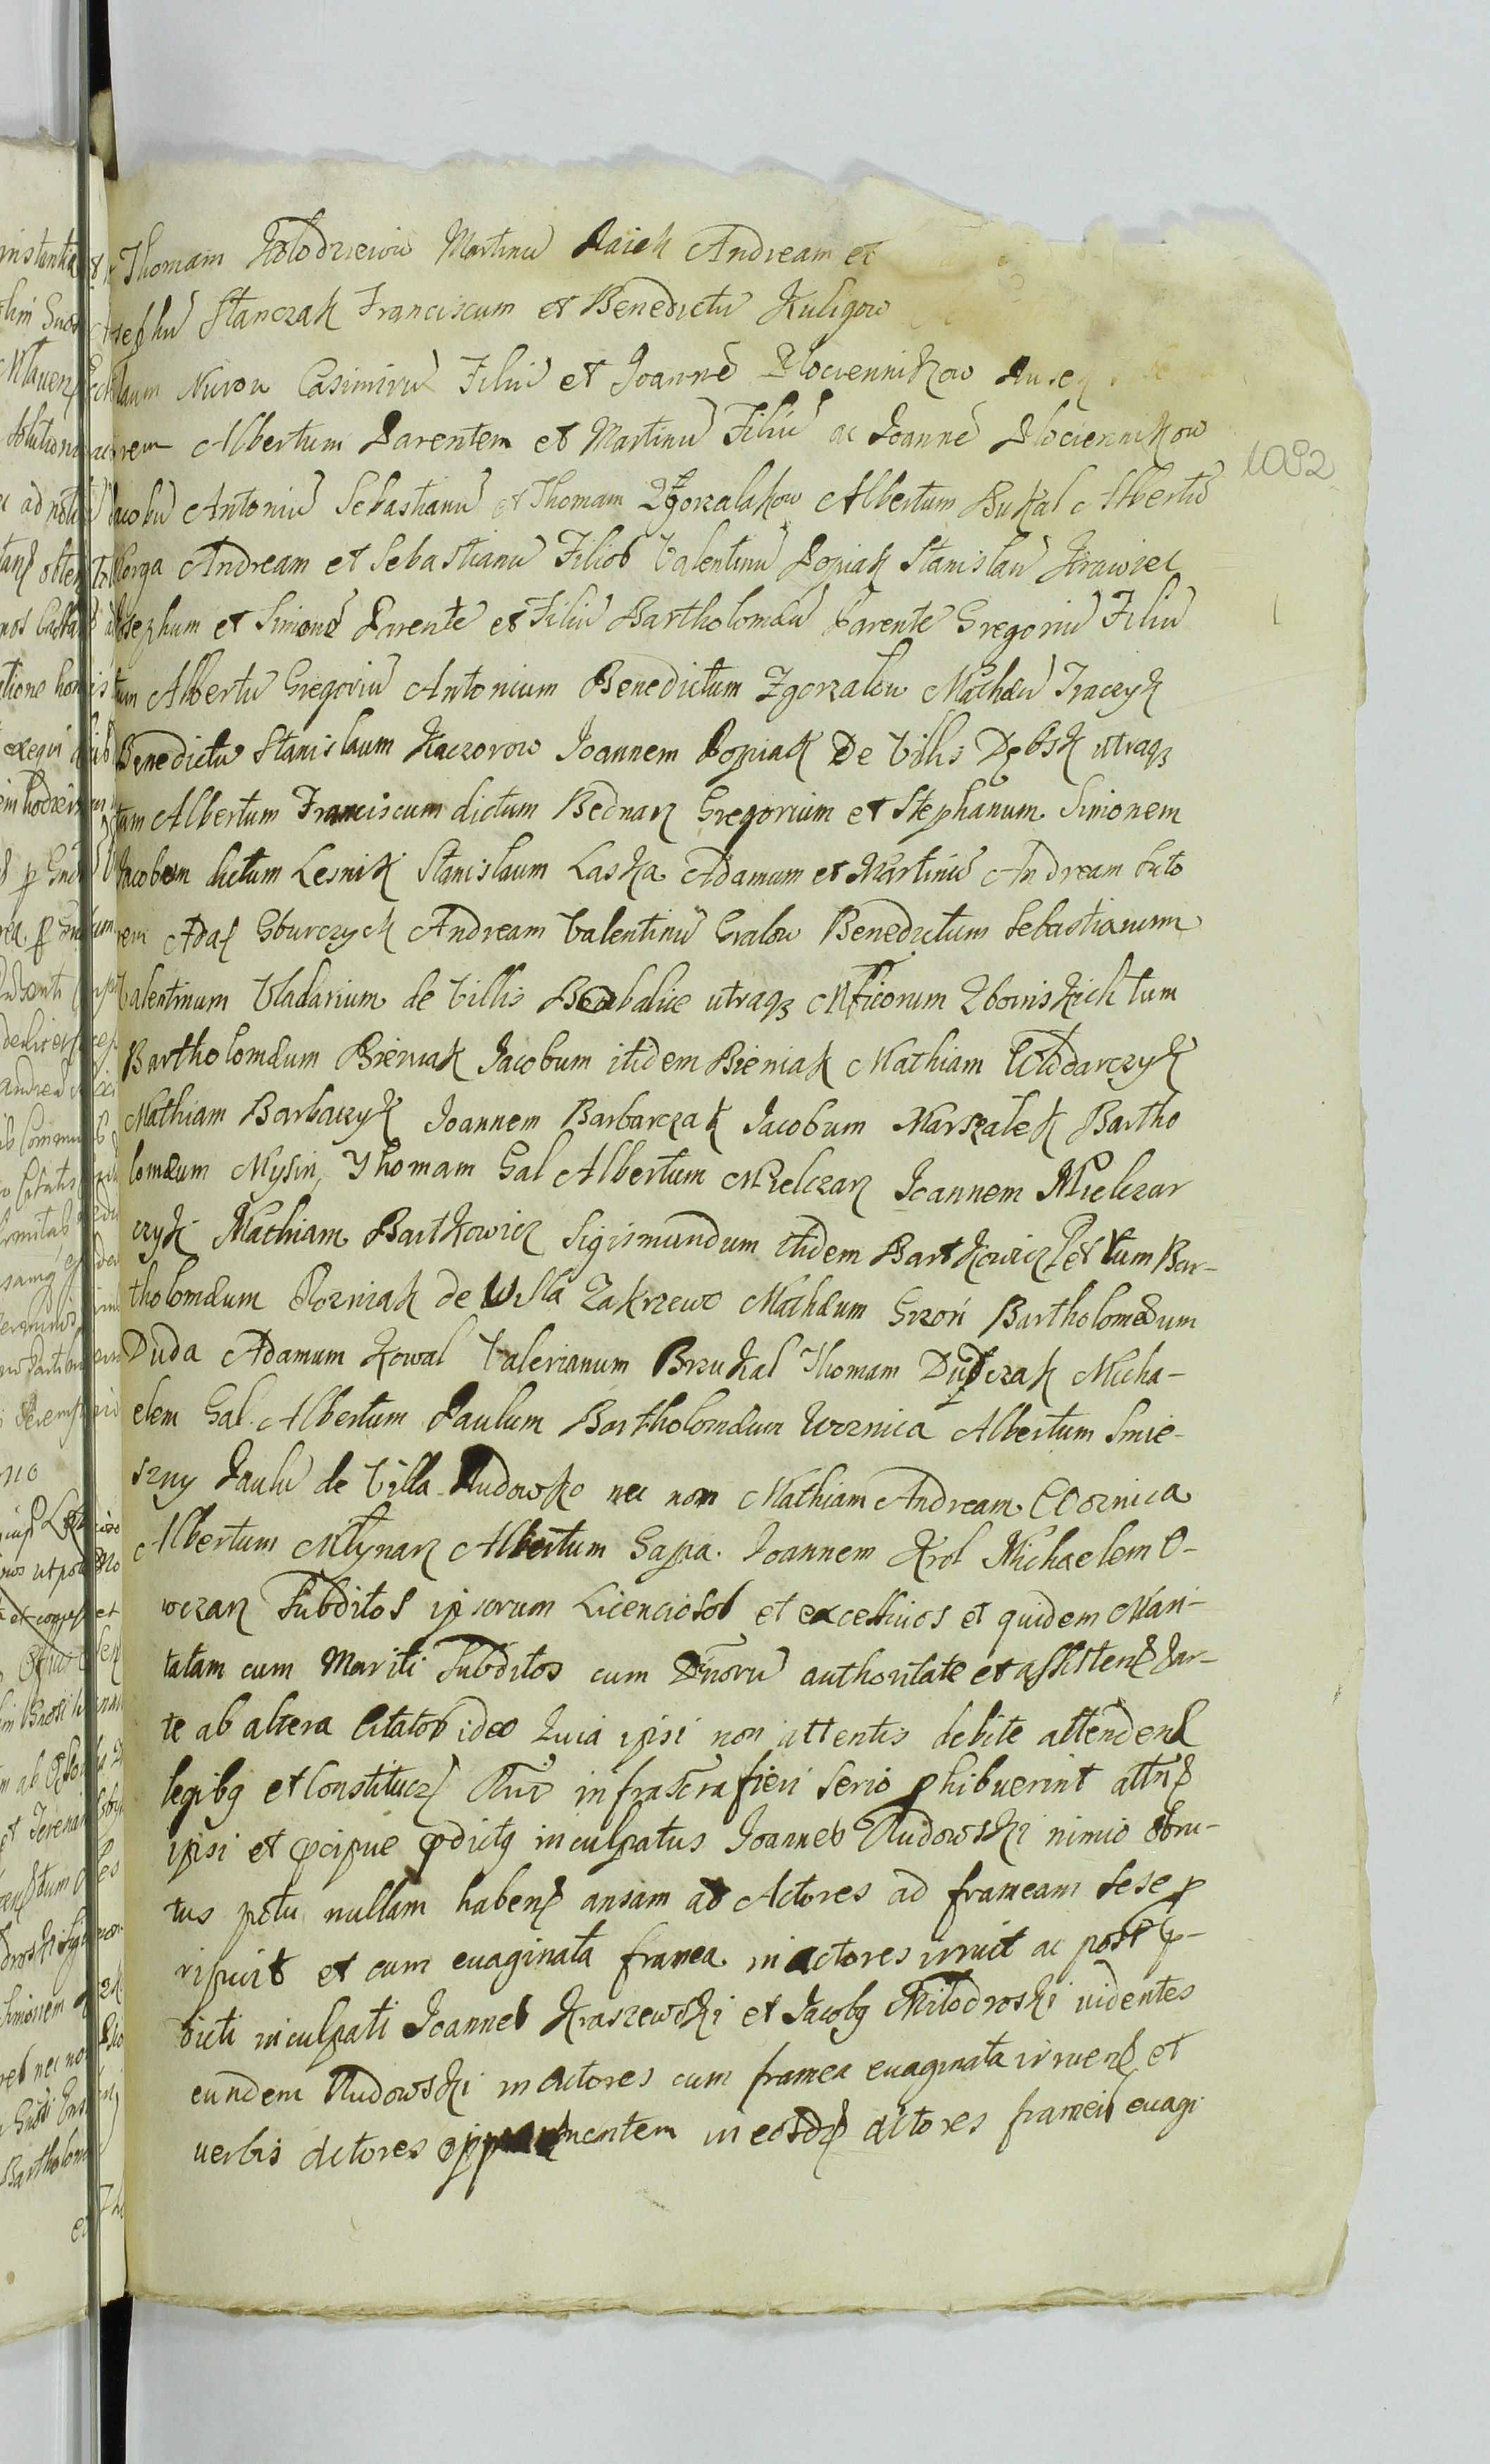 Thomam Kołodzieiow Martinũ Paiek Andream et
sephũ Stanczak Franciscum et Benedictũ Kuligow
laum Casimirũ Filiũ et Joannẽ Płociennikow
rem Albertum Parentem et Martinũ Filiũ ac Joannẽ Płociennikow
1092
Jacobũ Antoniũ Sebastianũ et Thomam Zgorzalakow Albertum Bukal Albertũ
Andream et Sebastianũ Filios Valentinũ Popiak Stanislaũ Krawiec
sephum et Simonẽ Parentẽ et Filiũ Bartholomæũ Parentẽ Gregoriũ Filiũ
Albertũ Gregoriũ Antonium Benedictum Zgorzalow Mathæũ Traczyk
Benedictũ Stanislaum Kaczorow Joannem Popiak De Villis Dębsk utraqꝫ
tam Albertum Franciscum dictum Bednarz Gregorium et Stephanum Simonem
Jacobum dictum Lesnik Stanislaum Laska Adamum et Martinũ Andream Suto
rem Gburczyck Andream Valentinũ Gralow Benedictum Sebastianum
Valentinum Vladarium de Villis utraqꝫ Mficorum Zboinskich tum
Bartholomæum Bieniak Jacobum itidem Bieniak Mathiam Włodarczyk
Mathiam Barbaczyk Joannem Barbarczak Jacobum Marszałek Bartho
lomæum Mysin, Thomam Gal Albertum Mielczarz Joannem Mielczar
czyk Mathiam Bartkowicz Sigismundum itidem Bartkowicz et tum Bar-
tholomæum Pozniak de Villa Zakrzewo Mathæum Grzoń Bartholomæum
Duda Adamum Kowal Valerianum Brzukal Thomam Dudczak Micha-
elem Gal Albertum Paulum Bartholomæum Woznica Albertum Smie-
szny Paulũ de Villa Rudowko nec non Mathiam Andream Woznica
Albertum Młynarz Albertum Gapa Joannem Krol Michaelem O-
wczarz Subditos ipsorum Licenciosos et excessivos et quidem Mari-
tatam cum Mariti Subditos cum Dnorũ authoritate et assisten Par-
te ab altera Citatos ideo Quia ipsi non attentis debite attenden
legibꝫ et Constitucz infrascra fieri serio ꝓhibuerint attn
ipsi et ꝓcipue ꝓdictꝫ inculpatus Joannes Rudowski nimio obru-
tus potu nullam haben ansam ab Actores ad frameam sese ꝓ
ripuit et cum evaginata framea in actores irruit ac post ꝓ-
dicti inculpati Joannes Kraszewski et Jacobꝫ Miłodroski videntes
eundem Rudowski in actores cum framea evaginata irruen et
verbis actores in eosd actores frameis evagi